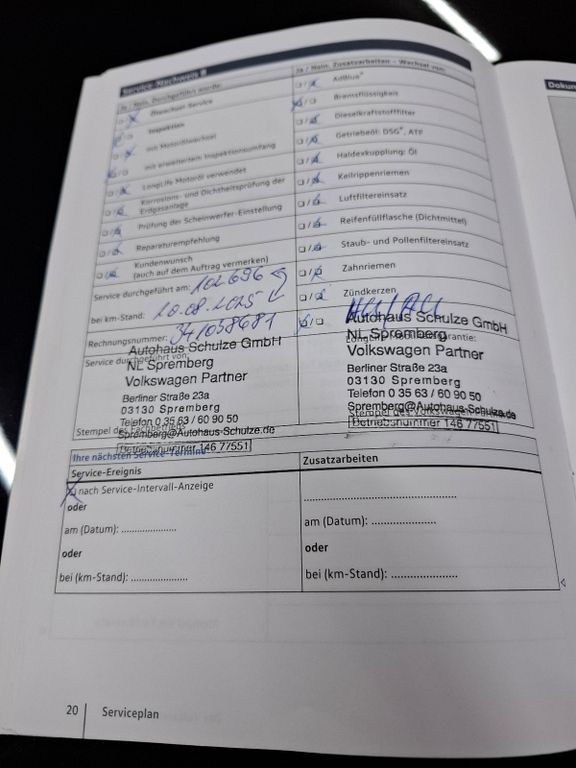 Service-Nachweis 8
Ja / Nein, Durchgeführt wurde:
Ölwechsel-Service
Inspektion
mit Motorölwechsel
mit erweitertem Inspektionsumfang
LongLife Motoröl verwendet
Korrosions- und Dichtheitsprüfung der
Erdgasanlage
Prüfung der Scheinwerfer-Einstellung
Reparaturempfehlung
Kundenwunsch
(auch auf dem Auftrag vermerken)
Service durchgeführt am: 102 696
bei km-Stand: 20.08.2025
Rechnungsnummer: 341058681
Service durchgeführt von:
Autohaus Schulze GmbH
NL Spremberg
Volkswagen Partner
Berliner Straße 23a
03130 Spremberg
Telefon 0 35 63 / 60 90 50
Spremberg@Autohaus-Schulze.de
Betriebsnummer 146 77551
Ja / Nein, Zusatzarbeiten – Wechsel von:
AdBlue®
Bremsflüssigkeit
Dieselkraftstofffilter
Getriebeöl: DSG®, ATF
Haldexkupplung: Öl
Keilrippenriemen
Luftfiltereinsatz
Reifenfüllflasche (Dichtmittel)
Staub- und Pollenfiltereinsatz
Zahnriemen
Zündkerzen
Autohaus Schulze GmbH
NL Spremberg
Volkswagen Partner
Berliner Straße 23a
03130 Spremberg
Telefon 0 35 63 / 60 90 50
Spremberg@Autohaus-Schulze.de
Betriebsnummer 146 77551
Ihre nächsten Service-Termine
Service-Ereignis
nach Service-Intervall-Anzeige
oder
am (Datum): ....................
oder
bei (km-Stand): ....................
Zusatzarbeiten
..................................................
am (Datum): ......................
oder
bei (km-Stand): ......................
20 Serviceplan
Dokum